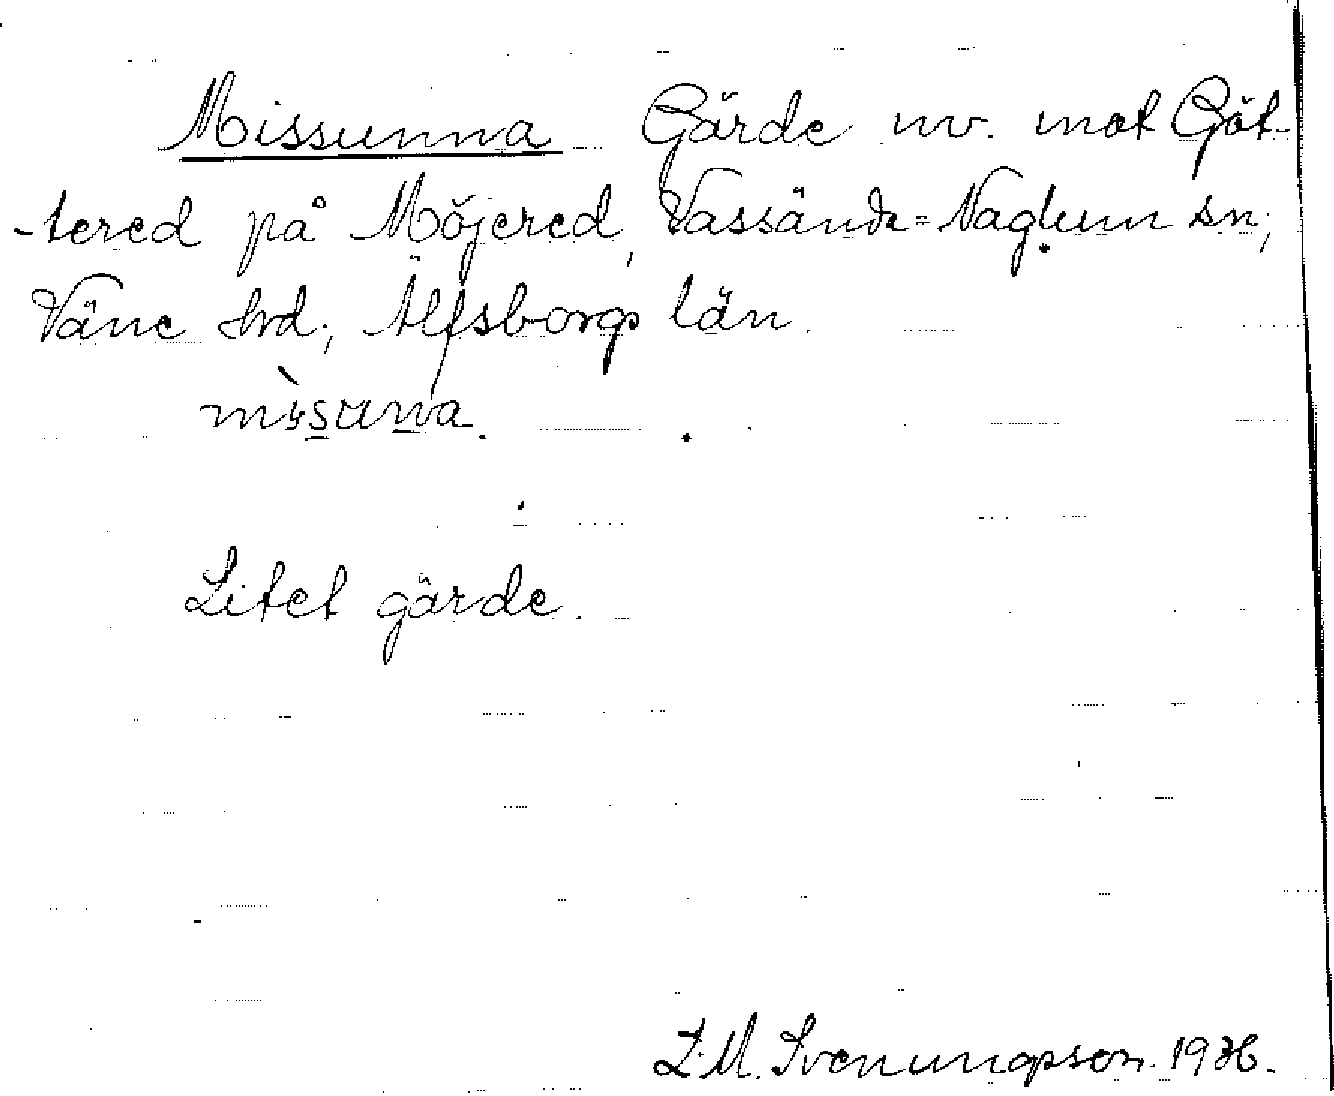 Missunna Gärde nv. mot Göt-
-tered på Möjered, Vassända=Naglum sn;
Väne hrd; Älfsborgs län.
mìsuna.
Litet gärde.
L.M. Svenungsson. 1936.